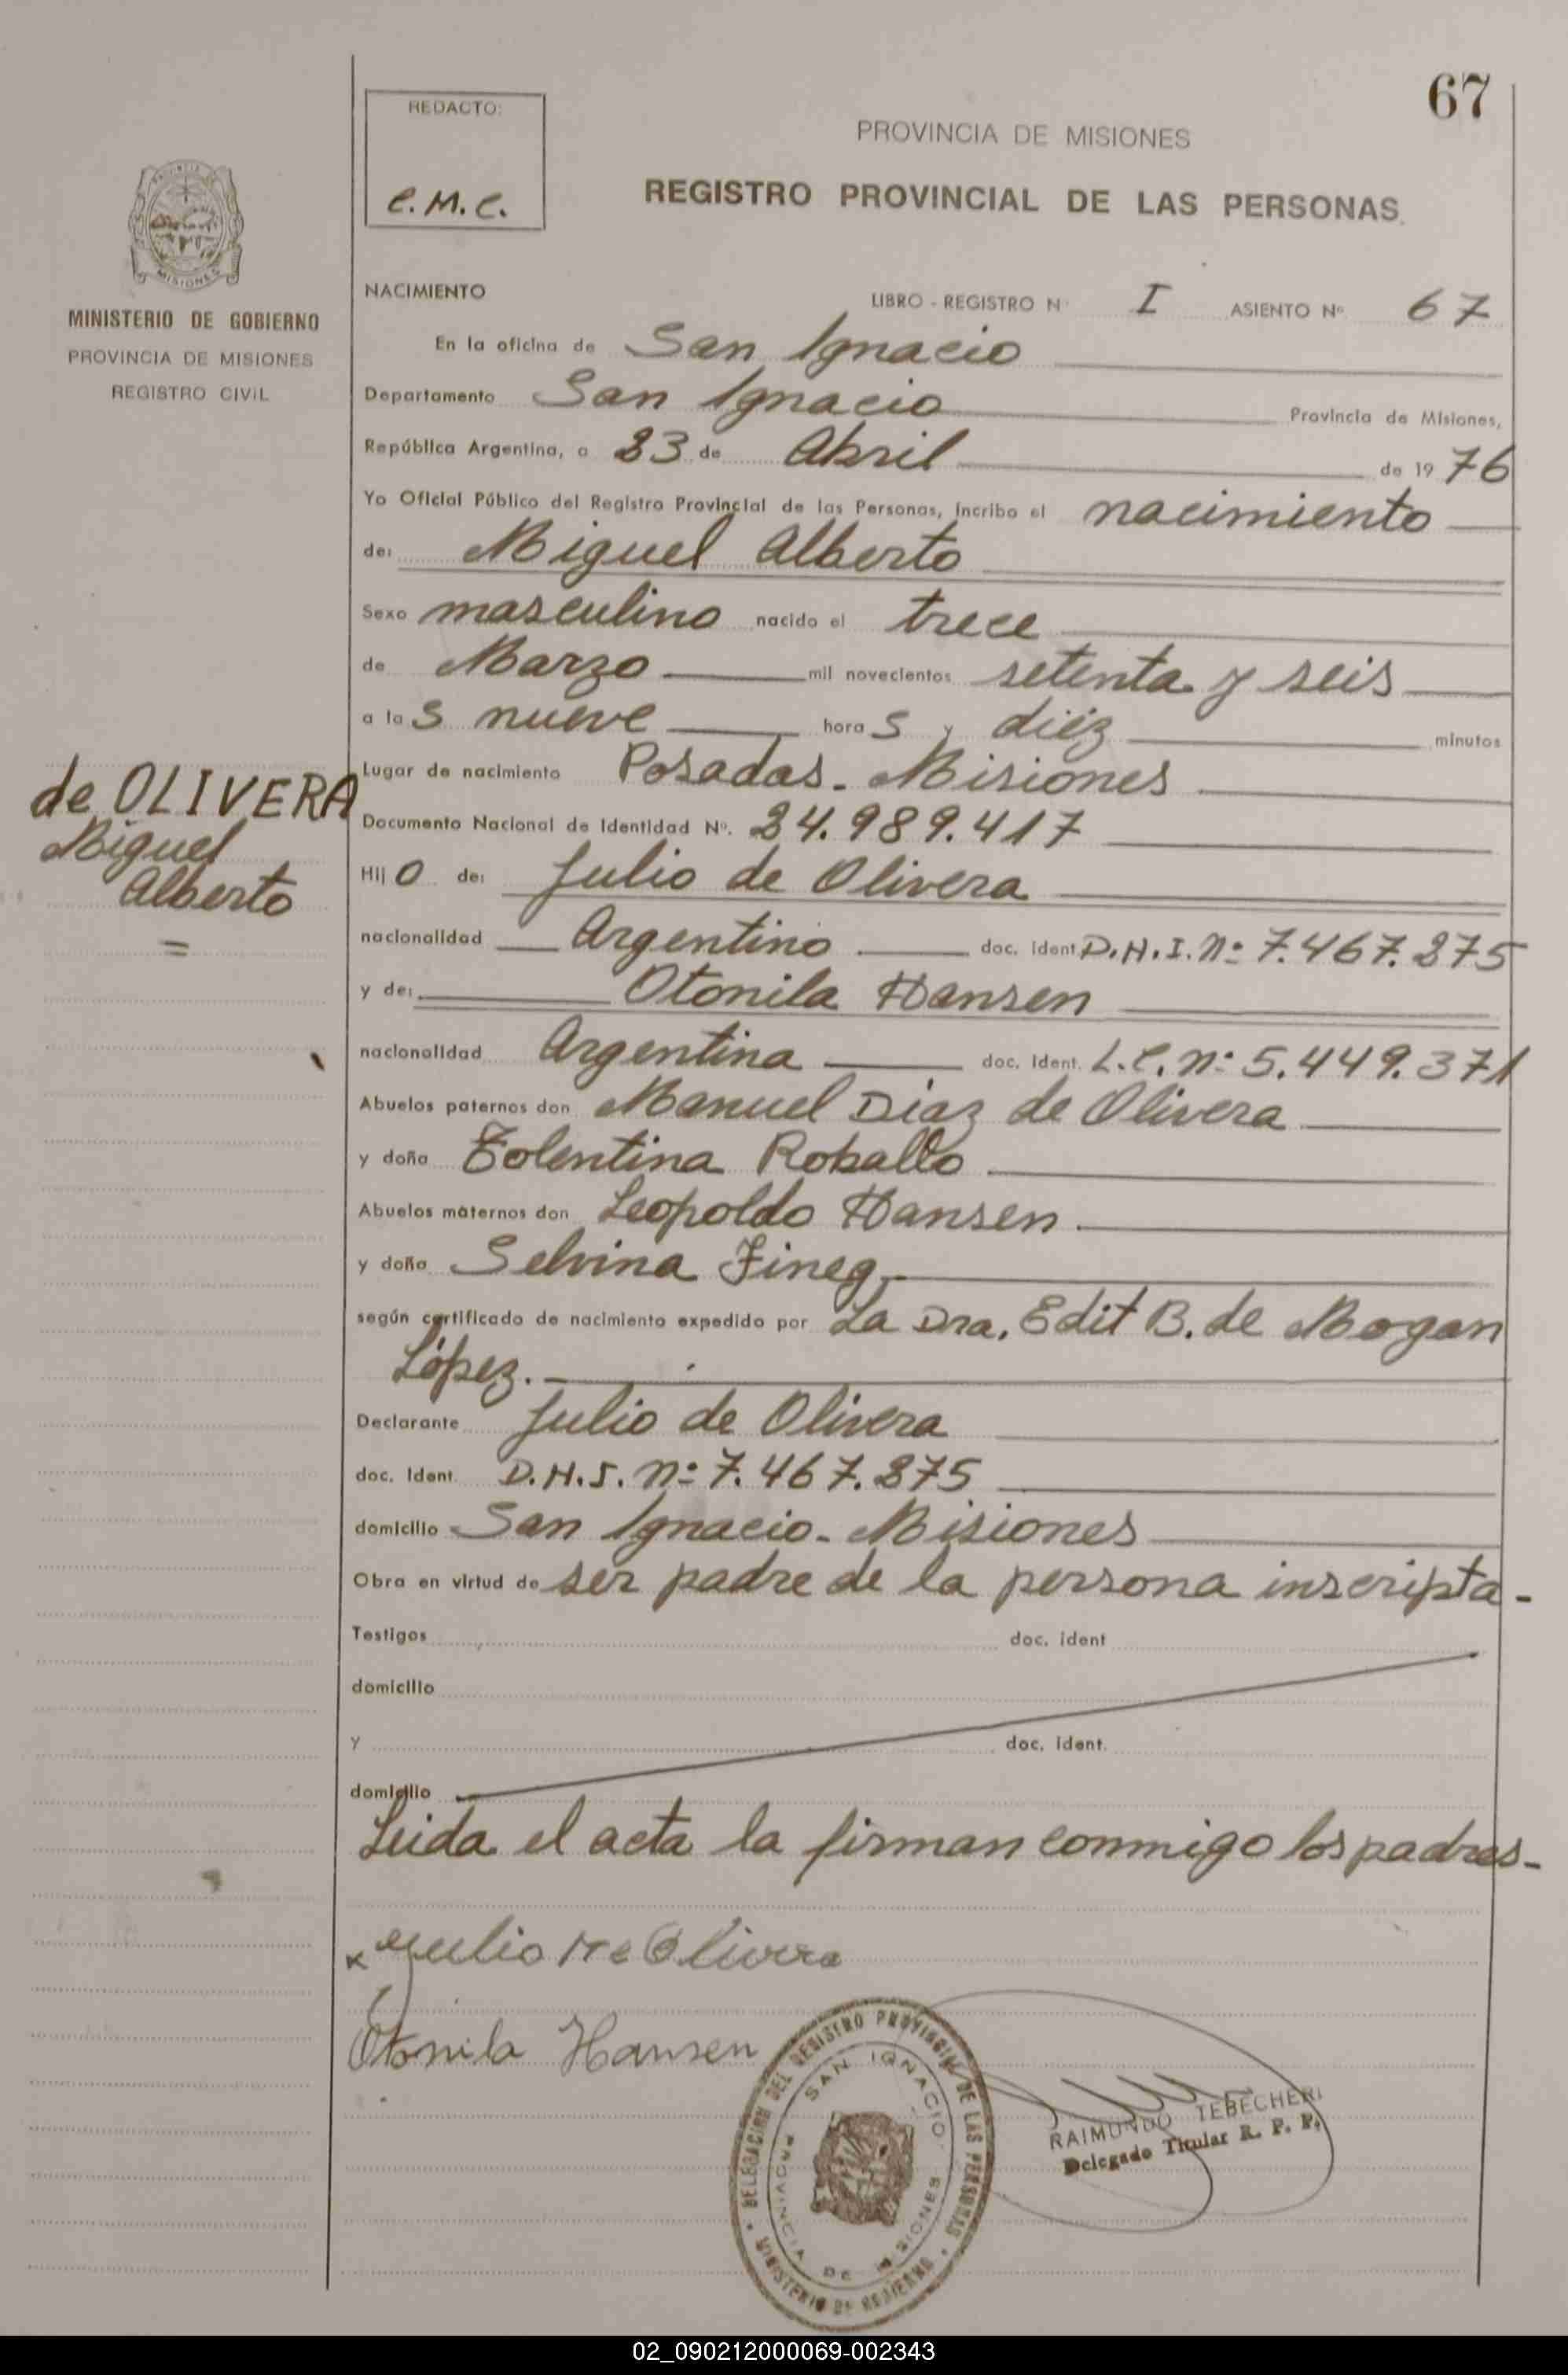 67
REDACTO:
C.M.C.
PROVINCIA DE MISIONES
REGISTRO PROVINCIAL DE LAS PERSONAS
MISIONES
MINISTERIO DE GOBIERNO
PROVINCIA DE MISIONES
REGISTRO CIVIL
NACIMIENTO
LIBRO - REGISTRO Nº I ASIENTO Nº 67
En la oficina de San Ignacio
Departamento San Ignacio Provincia de Misiones,
República Argentina, a 23 de Abril de 1976
Yo Oficial Público del Registro Provincial de las Personas, incribo el nacimiento
de: Miguel Alberto
Sexo masculino nacido el trece
de Marzo mil novecientos setenta y seis
a las nueve horas y diéz minutos
Lugar de nacimiento Posadas - Misiones
de OLIVERA
Miguel
Alberto
=
Documento Nacional de Identidad Nº. 24.989.417
Hijo de: Julio de Olivera
nacionalidad Argentino doc. ident. D.N.I. Nº 7.467.275
y de: Otonila Hansen
nacionalidad Argentina doc. ident. L.C. nº 5.449.371
Abuelos paternos don Manuel Diaz de Olivera
y doña Tolentina Roballo
Abuelos maternos don Leopoldo Hansen
y doña Selvina Fineg,
según certificado de nacimiento expedido por La Dra. Edit B. de Mogan
López. -
Declarante Julio de Olivera
doc. Ident. D.N.I. nº 7.467.275
domicilio San Ignacio - Misiones
Obra en virtud de ser padre de la persona inscripta -
Testigos doc. ident
domicilio
y doc. ident.
domicilio
Leida el acta la firman conmigo los padres -
x Julio de Olivera
Otonila Hansen
DELEGACION DEL REGISTRO PROVINCIAL DE LAS PERSONAS
SAN IGNACIO
PROVINCIA DE MISIONES
MINISTERIO DE GOBIERNO
RAIMUNDO TEBECHERI
Delegado Titular R. P. P.
02_090212000069-002343